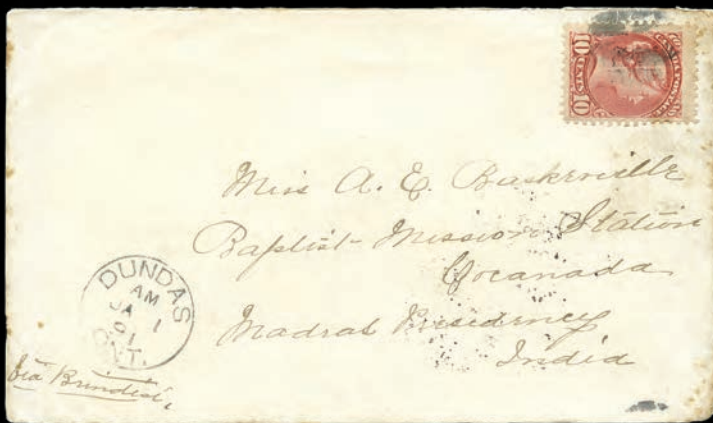 CANADA POSTAGE
10 CENTS 10
Miss A. E. Baskerville
Baptist Mission Station
Cocanada
Madras Presidency
India
DUNDAS
AM
JA 1
ONT.
Via Brindisi,